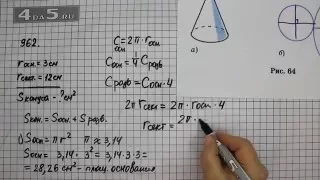 4DA5.RU
962.
r осн. = 3см
r сект. = 12см
S конуса - ? см²
S кон. = S осн. + S разв.
1) S осн = π r² π ≈ 3,14
S осн = 3,14 · 3² = 3,14 · 3 · 3 =
= 28,26 см² - площ. основания
C осн = 2π · r осн
C осн = 1/4 C разв
C разв = C осн · 4
2π r сект = 2π · r осн · 4
r сект = 2π ·
а)
б)
Рис. 64